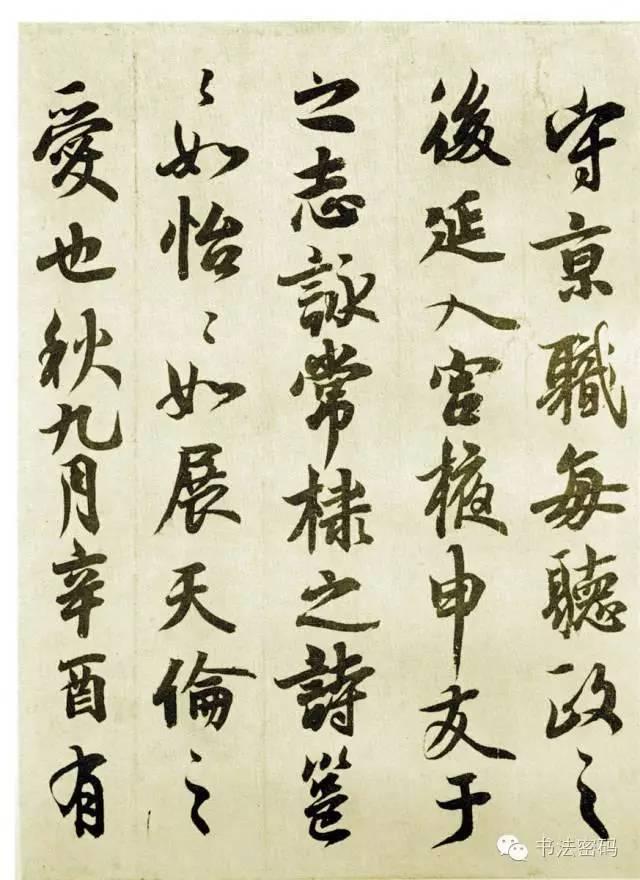 守京職每聽政之
後延入宮掖申友于
之志詠常棣之詩邕
〻如怡〻如展天倫之
愛也秋九月辛酉有
书法密码